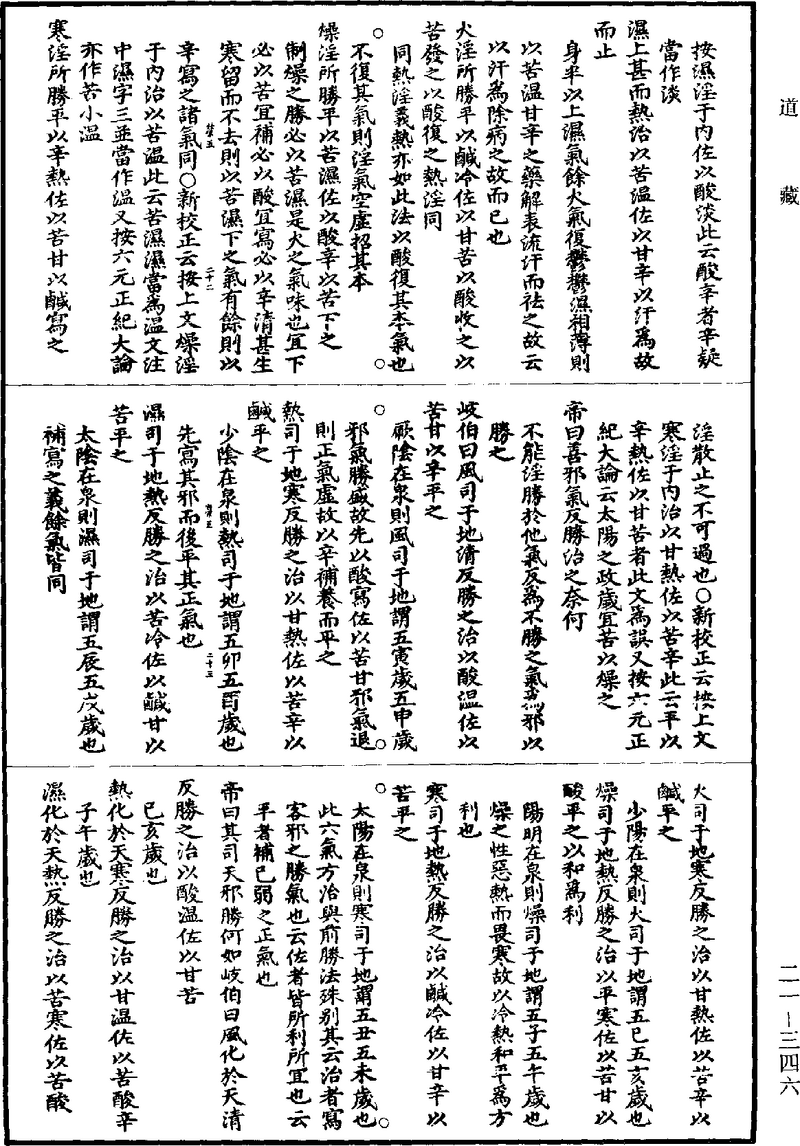 道藏
按濕淫于內佐以酸淡此云酸辛者辛疑
當作淡
濕上甚而熱治以苦温佐以甘辛以汗爲故
而止
身半以上濕氣餘火氣復鬱鬱濕相薄則
以苦温甘辛之藥解表流汗而祛之故云
以汗爲除病之故而已也
火淫所勝平以鹹冷佐以甘苦以酸收之以
苦發之以酸復之熱淫同
同熱淫義熱亦如此法以酸復其本氣也
不復其氣則淫氣空虛招其本
燥淫所勝平以苦濕佐以酸辛以苦下之
制燥之勝必以苦濕是火之氣味也宜下
必以苦宜補必以酸宜寫必以辛清甚生
寒留而不去則以苦濕下之氣有餘則以
辛寫之諸氣同○新校正云按上文燥淫
于內治以苦温此云苦濕濕當爲温文注
中濕字三並當作温又按六元正紀大論
亦作苦小温
寒淫所勝平以辛熱佐以苦甘以鹹寫之
淫散止之不可過也○新校正云按上文
寒淫于內治以甘熱佐以苦辛此云平以
辛熱佐以甘苦者此文爲誤又按六元正
紀大論云太陽之政歲宜苦以燥之
帝曰善邪氣反勝治之奈何
不能淫勝於他氣反爲不勝之氣爲邪以
勝之
岐伯曰風司于地清反勝之治以酸温佐以
苦甘以辛平之
厥陰在泉則風司于地謂五寅歲五申歲
邪氣勝盛故先以酸寫佐以苦甘邪氣退
則正氣虛故以辛補養而平之
熱司于地寒反勝之治以甘熱佐以苦辛以
鹹平之
少陰在泉則熱司于地謂五卯五酉歲也
先寫其邪而後平其正氣也
濕司于地熱反勝之治以苦冷佐以鹹甘以
苦平之
太陰在泉則濕司于地謂五辰五戌歲也
補寫之義餘氣皆同
火司于地寒反勝之治以甘熱佐以苦辛以
鹹平之
少陽在泉則火司于地謂五巳五亥歲也
燥司于地熱反勝之治以平寒佐以苦甘以
酸平之以和爲利
陽明在泉則燥司于地謂五子五午歲也
燥之性惡熱而畏寒故以冷熱和平爲方
利也
寒司于地熱反勝之治以鹹冷佐以甘辛以
苦平之
太陽在泉則寒司于地謂五丑五未歲也
此六氣方治與前勝法殊別其云治者寫
客邪之勝氣也云佐者皆所利所宜也云
平者補已弱之正氣也
帝曰其司天邪勝何如岐伯曰風化於天清
反勝之治以酸温佐以甘苦
巳亥歲也
熱化於天寒反勝之治以甘温佐以苦酸辛
子午歲也
濕化於天熱反勝之治以苦寒佐以苦酸
二一－三四六